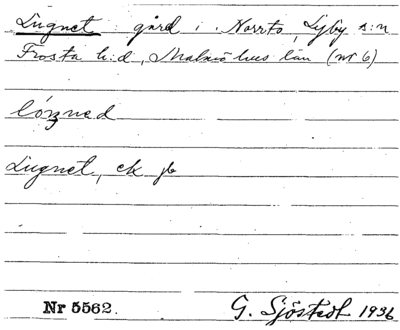 Lugnet gård i Norrto, Lyby s:n
Frosta h:d, Malmöhus län (nr 6)
lóŋned
Lugnet, ek jb
Nr 5562.
G. Sjöstedt 1936